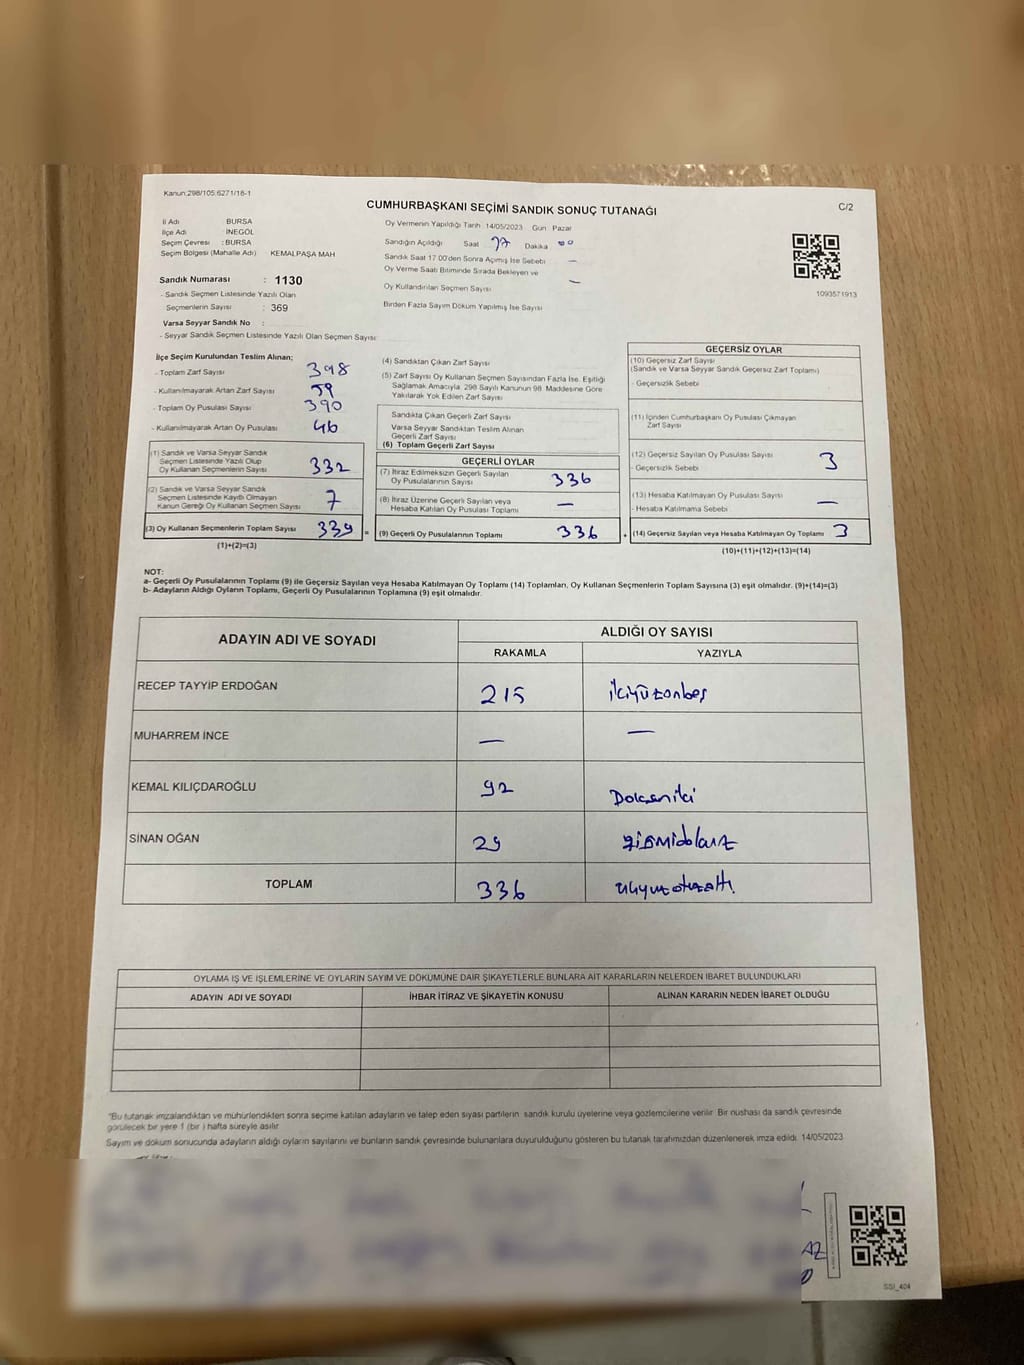 Kanun:298/105:6271/18-1
CUMHURBAŞKANI SEÇİMİ SANDIK SONUÇ TUTANAĞI
C/2
İl Adı BURSA
İlçe Adı İNEGÖL
Seçim Çevresi : BURSA
Seçim Bölgesi (Mahalle Adı) KEMALPAŞA MAH
Sandık Numarası : 1130
- Sandık Seçmen Listesinde Yazılı Olan
Seçmenlerin Sayısı : 369
Varsa Seyyar Sandık No :
- Seyyar Sandık Seçmen Listesinde Yazılı Olan Seçmen Sayısı
Oy Vermenin Yapıldığı Tarih 14/05/2023 Gün Pazar
Sandığın Açıldığı Saat 17 Dakika 00
Sandık Saat 17.00'den Sonra Açımış İse Sebebi —
Oy Verme Saati Bitiminde Sırada Bekleyen ve
Oy Kullandırılan Seçmen Sayısı —
Birden Fazla Sayım Döküm Yapılmış İse Sayısı
1093571913
İlçe Seçim Kurulundan Teslim Alınan;
- Toplam Zarf Sayısı 398
- Kullanılmayarak Artan Zarf Sayısı 59
- Toplam Oy Pusulası Sayısı 390
- Kullanılmayarak Artan Oy Pusulası 46
(1) Sandık ve Varsa Seyyar Sandık
Seçmen Listesinde Yazılı Olup
Oy Kullanan Seçmenlerin Sayısı 332
(2) Sandık ve Varsa Seyyar Sandık
Seçmen Listesinde Kayıtlı Olmayan
Kanun Gereği Oy Kullanan Seçmen Sayısı 7
(3) Oy Kullanan Seçmenlerin Toplam Sayısı 339 =
(1)+(2)=(3)
(4) Sandıktan Çıkan Zarf Sayısı
(5) Zarf Sayısı Oy Kullanan Seçmen Sayısından Fazla İse, Eşitliği
Sağlamak Amacıyla 298 Sayılı Kanunun 98. Maddesine Göre
Yakılarak Yok Edilen Zarf Sayısı
Sandıkta Çıkan Geçerli Zarf Sayısı
Varsa Seyyar Sandıktan Teslim Alınan
Geçerli Zarf Sayısı
(6) Toplam Geçerli Zarf Sayısı
GEÇERLİ OYLAR
(7) İtiraz Edilmeksizin Geçerli Sayılan
Oy Pusulalarının Sayısı 336
(8) İtiraz Üzerine Geçerli Sayılan veya
Hesaba Katılan Oy Pusulası Toplamı —
(9) Geçerli Oy Pusulalarının Toplamı 336 +
GEÇERSİZ OYLAR
(10) Geçersiz Zarf Sayısı
(Sandık ve Varsa Seyyar Sandık Geçersiz Zarf Toplamı)
- Geçersizlik Sebebi
(11) İçinden Cumhurbaşkanı Oy Pusulası Çıkmayan
Zarf Sayısı
(12) Geçersiz Sayılan Oy Pusulası Sayısı 3
- Geçersizlik Sebebi
(13) Hesaba Katılmayan Oy Pusulası Sayısı —
- Hesaba Katılmama Sebebi
(14) Geçersiz Sayılan veya Hesaba Katılmayan Oy Toplamı 3
(10)+(11)+(12)+(13)=(14)
NOT:
a- Geçerli Oy Pusulalarının Toplamı (9) ile Geçersiz Sayılan veya Hesaba Katılmayan Oy Toplamı (14) Toplamları, Oy Kullanan Seçmenlerin Toplam Sayısına (3) eşit olmalıdır. (9)+(14)=(3)
b- Adayların Aldığı Oyların Toplamı, Geçerli Oy Pusulalarının Toplamına (9) eşit olmalıdır.
ADAYIN ADI VE SOYADI ALDIĞI OY SAYISI
RAKAMLA YAZIYLA
RECEP TAYYİP ERDOĞAN 215 ikiyüzonbeş
MUHARREM İNCE — —
KEMAL KILIÇDAROĞLU 92 Doksaniki
SİNAN OĞAN 29
TOPLAM 336 üçyüzotuzaltı
OYLAMA İŞ VE İŞLEMLERİNE VE OYLARIN SAYIM VE DÖKÜMÜNE DAİR ŞİKAYETLERLE BUNLARA AİT KARARLARIN NELERDEN İBARET BULUNDUKLARI
ADAYIN ADI VE SOYADI İHBAR İTİRAZ VE ŞİKAYETİN KONUSU ALINAN KARARIN NEDEN İBARET OLDUĞU
"Bu tutanak imzalandıktan ve mühürlendikten sonra seçime katılan adayların ve talep eden siyasi partilerin sandık kurulu üyelerine veya gözlemcilerine verilir. Bir nüshası da sandık çevresinde
görülecek bir yere 1 (bir ) hafta süreyle asılır.
Sayım ve döküm sonucunda adayların aldığı oyların sayılarını ve bunların sandık çevresinde bulunanlara duyurulduğunu gösteren bu tutanak tarafımızdan düzenlenerek imza edildi. 14/05/2023
AZ
SSI_404